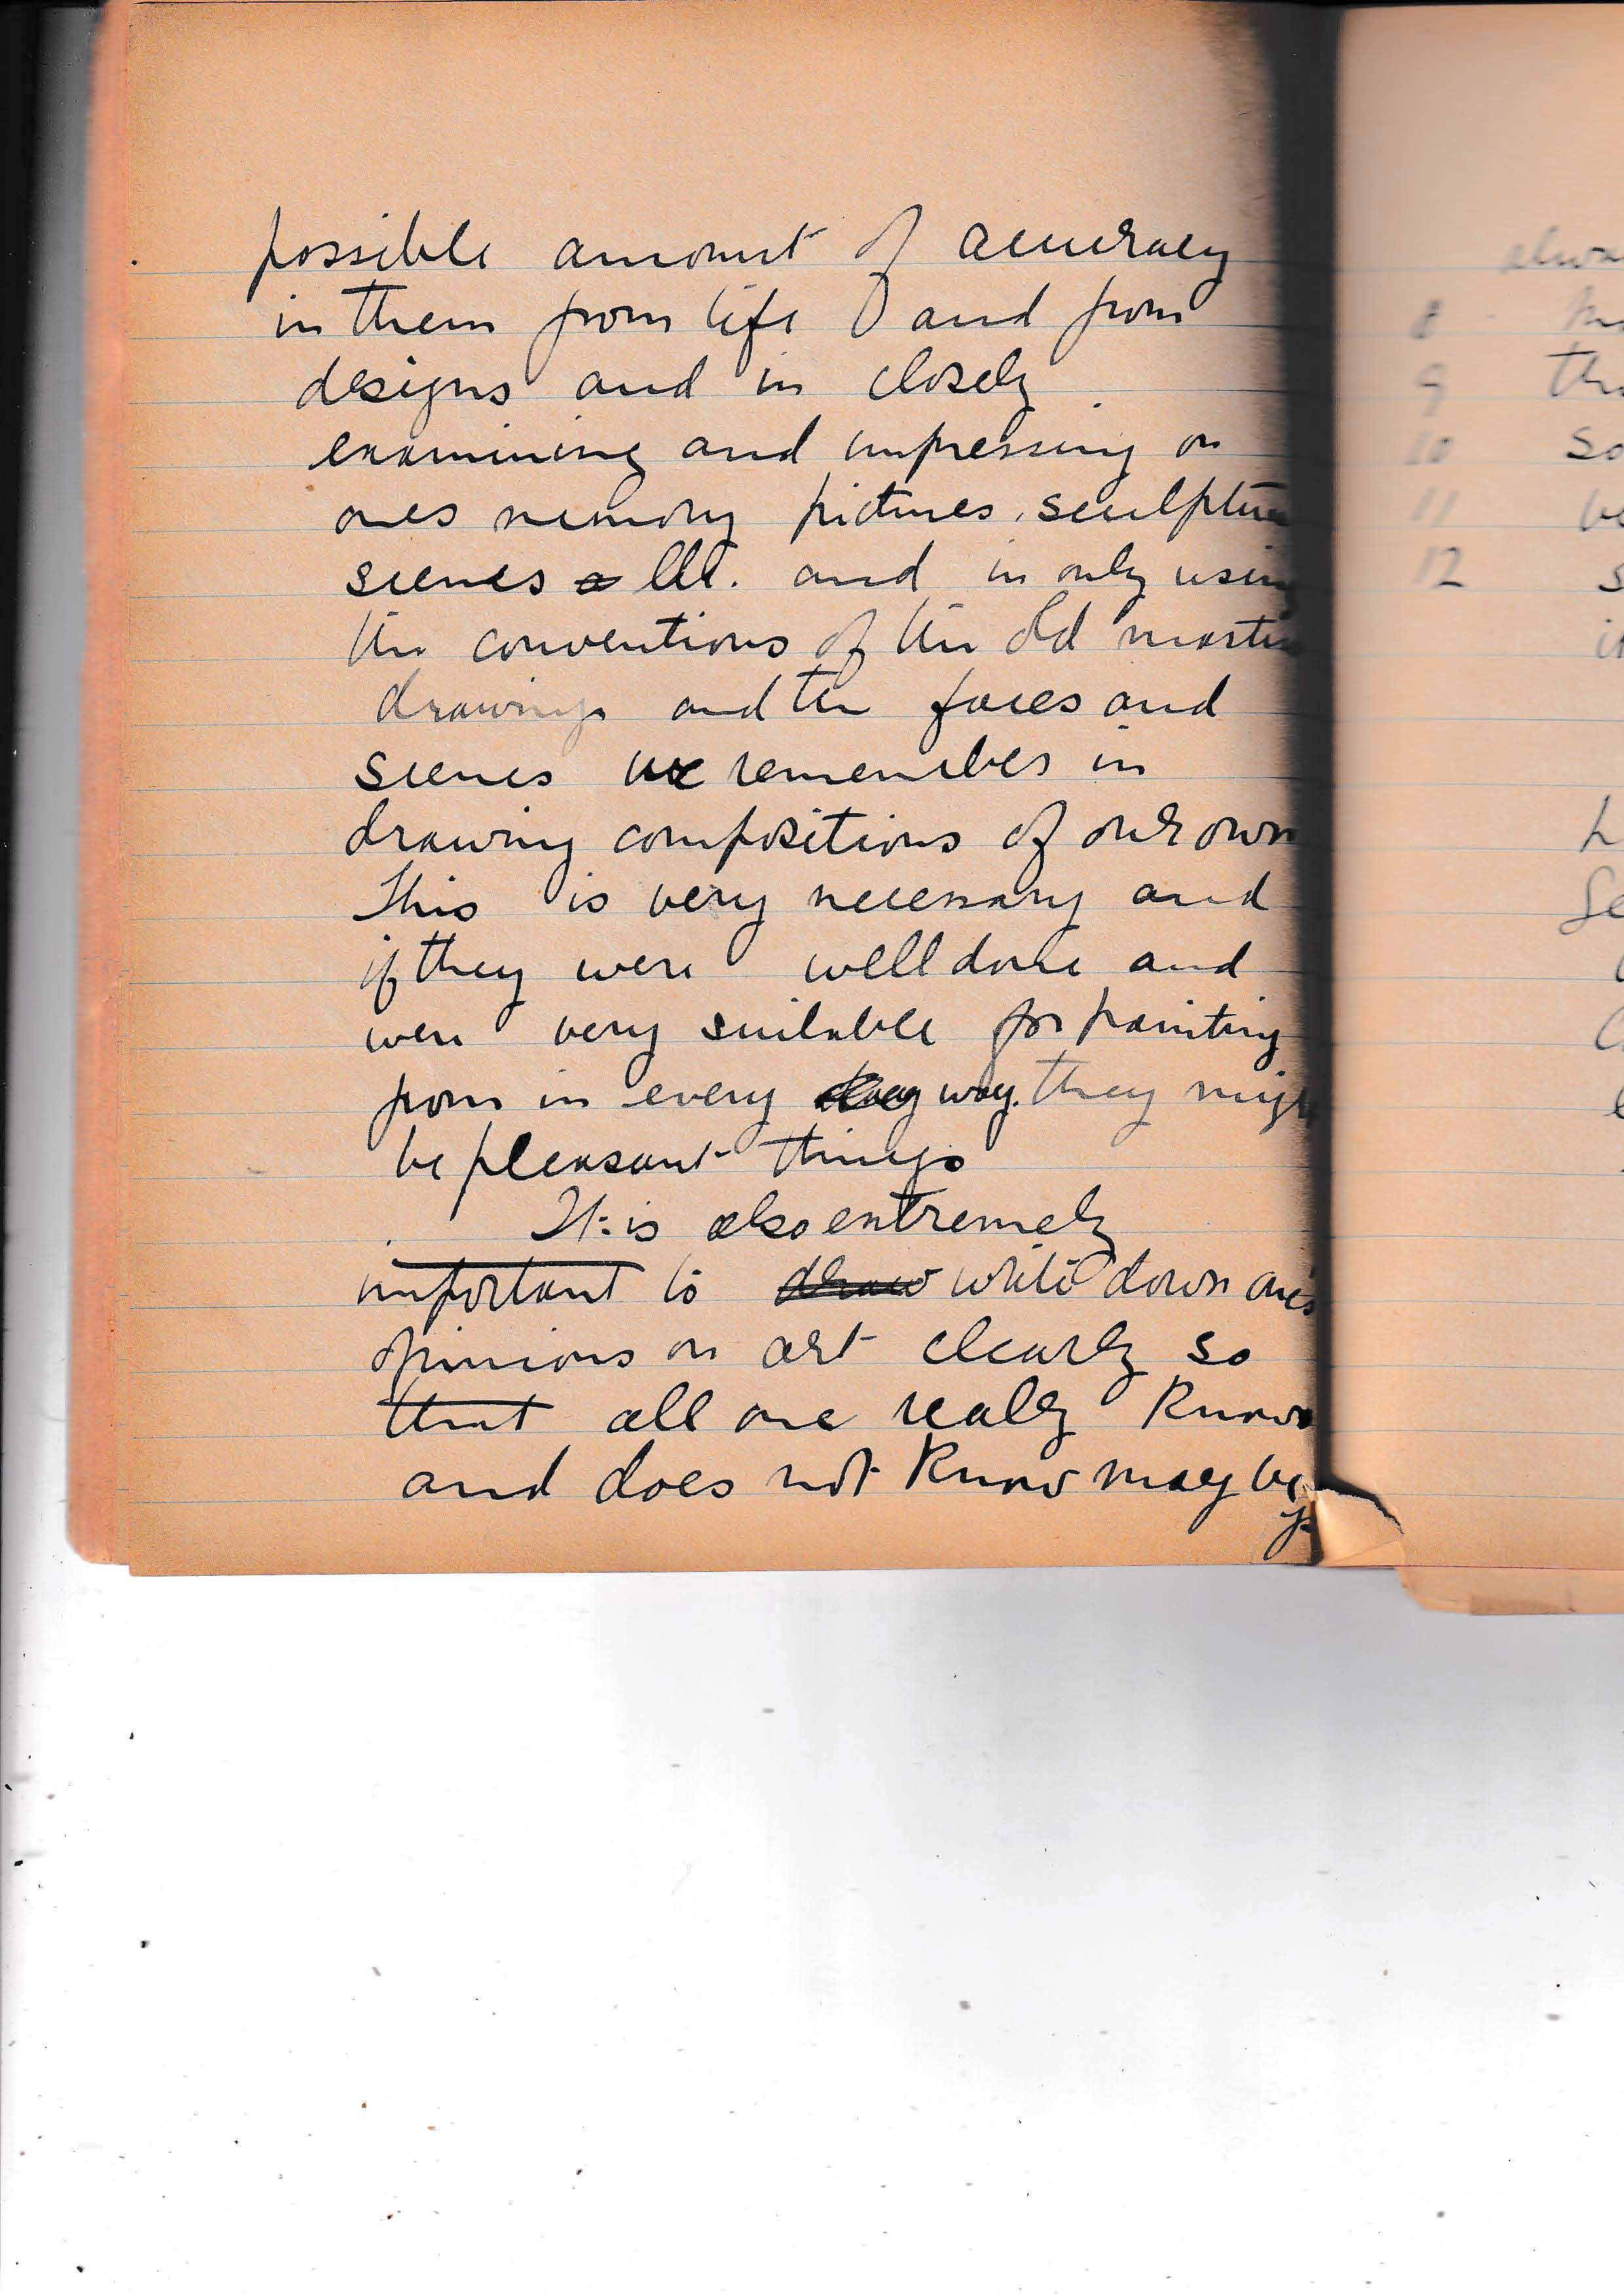 possible amount of accuracy
in them from life and from
designs and in closely
examining and impressing on
ones memory pictures, sculptu
scenes etc. and in only usin
the conventions of the old master
drawings and the faces and
scenes we remember in
drawing compositions of our own
This is very necessary and
if they were well done and
were very suitable for painting
from in every way. they migh
be pleasant things
It is also extremely
important to draw write down one's
opinions on art clearly so
that all one really knows
and does not know may be
alwa
8
9 th
10 so
11 be
12 s
L
Se